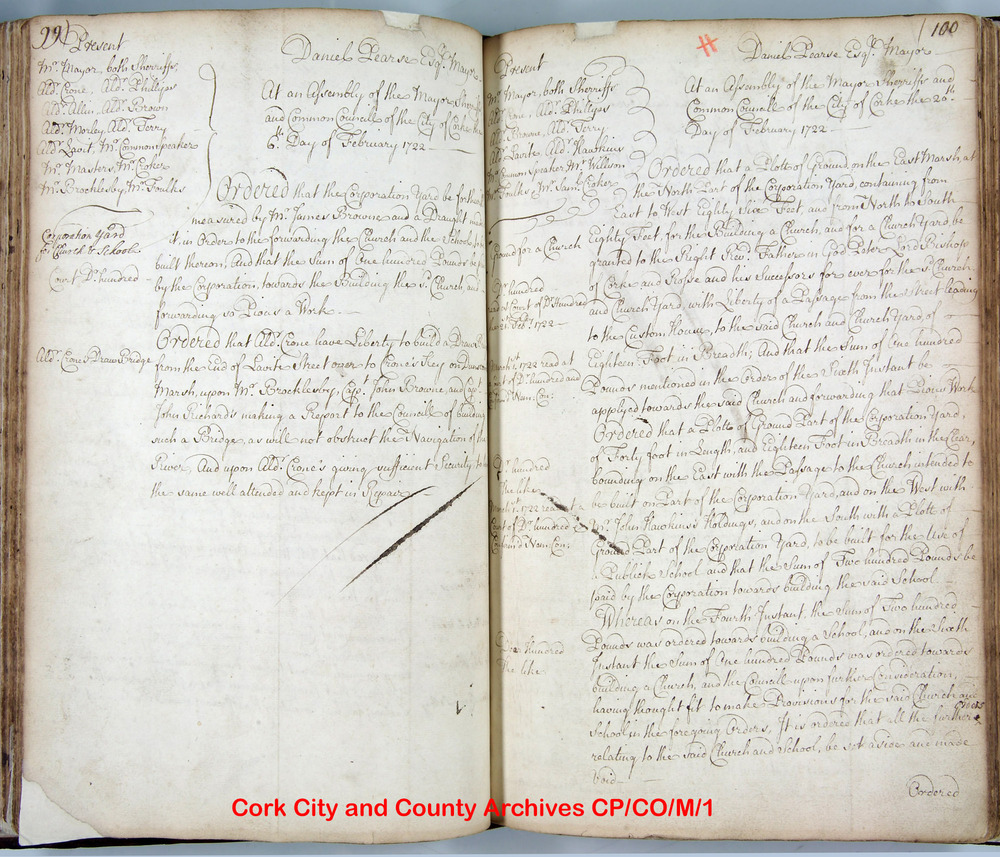 99
Present
Mr. Mayor, both Sherriffs,
Aldr. Crone, Aldr. Phillips
Aldr. Allin, Aldr. Brown
Aldr. Morley, Aldr. Terry
Aldr. Lavit, Mr. Common Speaker
Mr. Masters, Mr. Coker
Mr. Brocklesby, Mr. Foulks
Daniel Pearse Esqr. Mayor
At an Assembly of the Mayor Sherriffs
and Common Councill of the City of Corke the
6th. Day of February 1722
Corporation Yard
for Church & School
Court Dr. hundred
Ordered that the Corporation Yard be forthwith
measured by Mr. James Browne and a Draught made
it, in Order to the forwarding the Church and the School to be
built thereon, And that the Sum of One hundred Pounds be
by the Corporation, towards the Building the sd. Church, and
forwarding so Pious a Work.
Aldr. Crones Draw Bridge
Ordered that Aldr. Crone have Liberty to build a Draw
from the End of Lavits Street over to Crone's Key on Dunscombs
Marsh, upon Mr. Brocklesby, Cap. John Browne, and
John Richards making a Report to the Councill of building
such a Bridge, as will not obstruct the Navigation of the
River, And upon Aldr. Crone's giving sufficient Security to
the same well attended and kept in Repair
100
Present
Mr. Mayor, both Sherriffs
Aldr. Crone, Aldr. Phillips
Aldr. Browne, Aldr. Terry
Aldr. Lavite, Aldr. Hawkins
Mr. Common Speaker Mr. Willison
Mr. Foulks, Mr. Saml. Croker
Daniel Pearse Esqr. Mayor
At an Assembly of the Mayor Sherriffs and
Common Councill of the City of Corke the 20th.
Day of February 1722
Ground for a Church
Dr. hundred
read Court of Dr. Hundred
Febr. 1722
1722 read at
Court of Dr. hundred and
Nem: Con:
Ordered that a Plott of Ground, on the East Marsh, at
the North Part of the Corporation Yard, containing from
East to West Eighty Six Feet, and from North to South
Eighty Feet, for the Building a Church, and for a Church Yard, be
granted to the Right Revd. Father in God Peter Lord Bishop
of Corke and Rosse and his Successors for ever for the sd. Church
and Church Yard, with Liberty of a Passage from the Street leading
to the Custom House, to the said Church and Church Yard, of
Eighteen Foot in Breadth; And that the Sum of One hundred
Pounds mentioned in the Order of the Sixth Instant be
applyed towards the said Church and forwarding that Pious Work
Dr. hundred
The like
March 1. 1722 read at a
Court of Dr. hundred &
Nem: Con:
Ordered that a Plott of Ground Part of the Corporation Yard,
of Forty foot in Length, and Eighteen Foot in Breadth in the Clear,
bounding on the East with the Passage to the Church intended to
be built on Part of the Corporation Yard, and on the West with
Mr. John Hawkins's Holdings, and on the South with a Plott of
Ground Part of the Corporation Yard, to be built for the Use of
a Publick School and that the Sum of Two hundred Pounds be
paid by the Corporation towards building the said School
Dear hundred
The like
Whereas on the Fourth Instant, the Sum of Two hundred
Pounds was ordered towards building a School, and on the Sixth
Instant the Sum of One hundred Pounds was ordered towards
building a Church, and the Councill upon further Consideration,
having thought fit to make Provisions for the said Church and
School, in the foregoing Orders, It is ordered that all the further Orders
relating to the said Church and School, be set aside and made
void
Ordered
Cork City and County Archives CP/CO/M/1